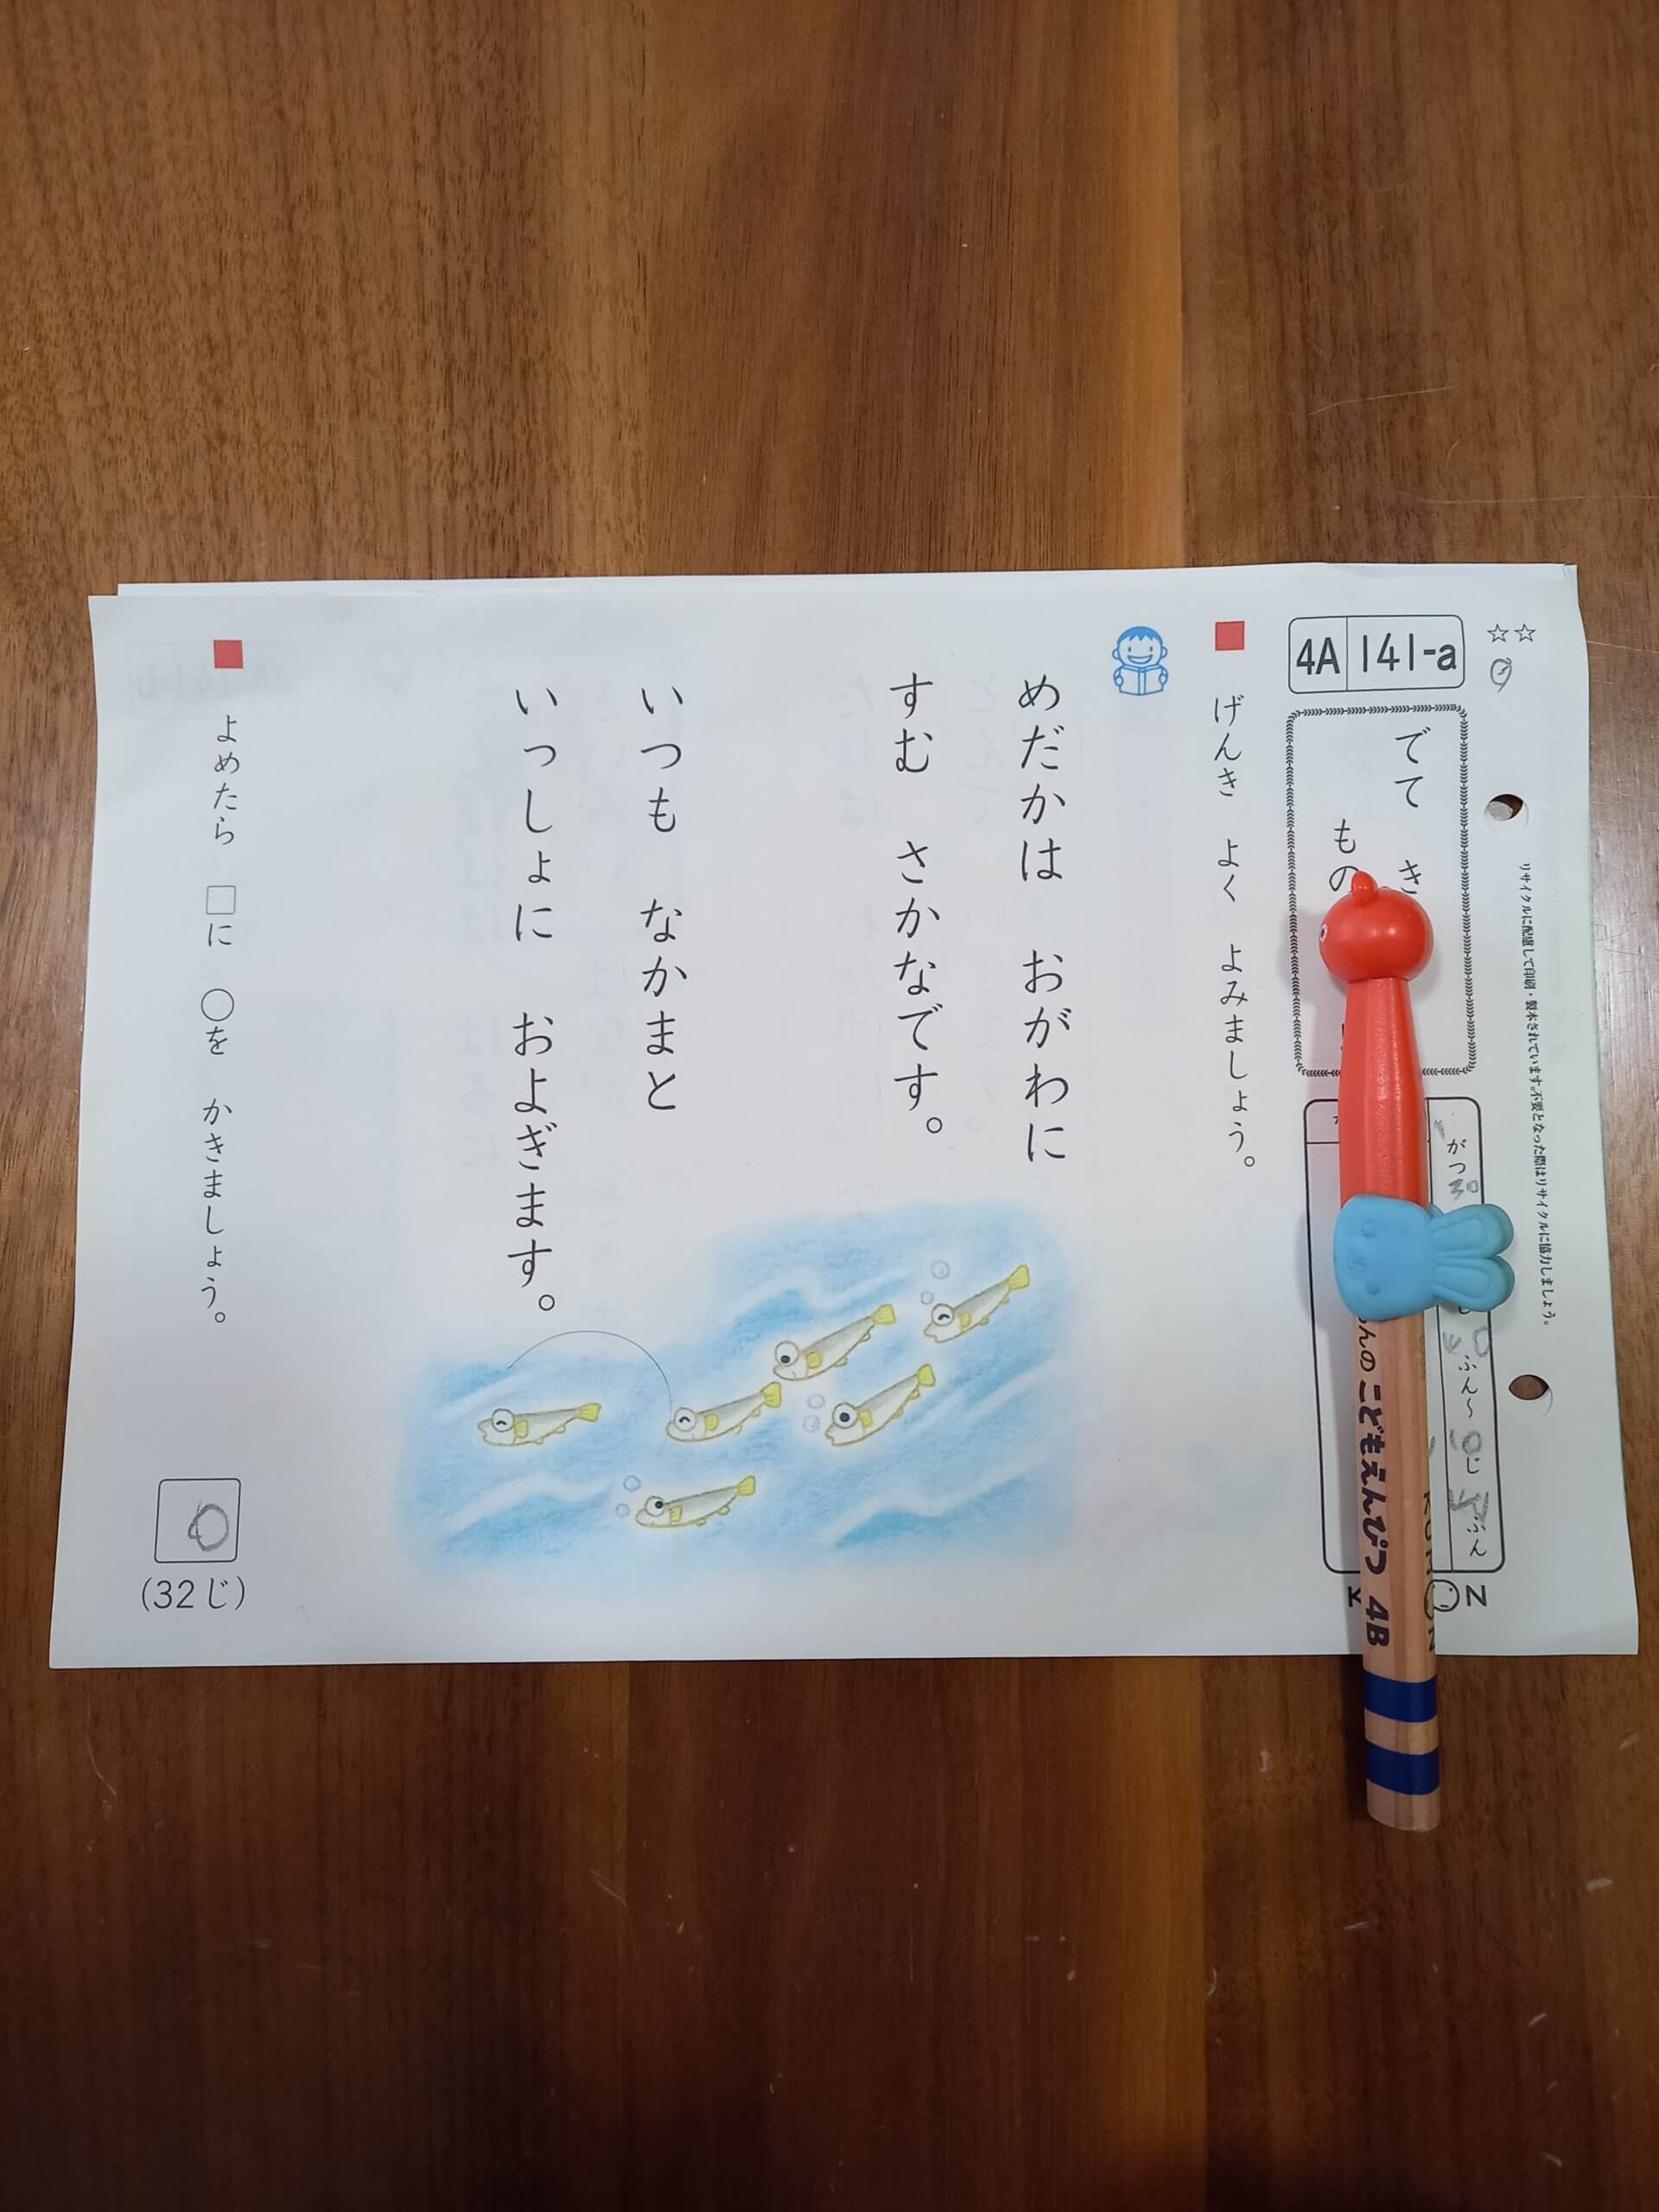 ☆☆
4A 141-a
でて き
もの
がつ
ふん〜10じ
ふん
リサイクルに配慮して印刷・製本されています。不要となった際はリサイクルに協力しましょう。
げんき よく よみましょう。
めだかは おがわに
すむ さかなです。
いつも なかまと
いっしょに およぎます。
よめたら □に ○を かきましょう。
(32じ)
こどもえんぴつ 4B